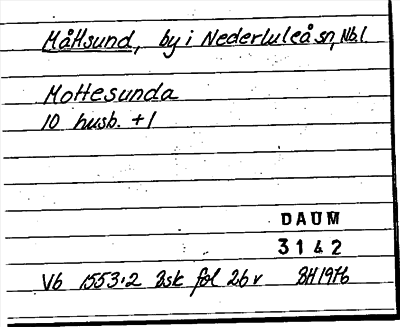 Måttsund, by i Nederluleå sn, Nb.l.
Mottesunda
10 husb. + 1
DAUM
3142
Vb 1553:2 Bsk fol 26 v BH 1976